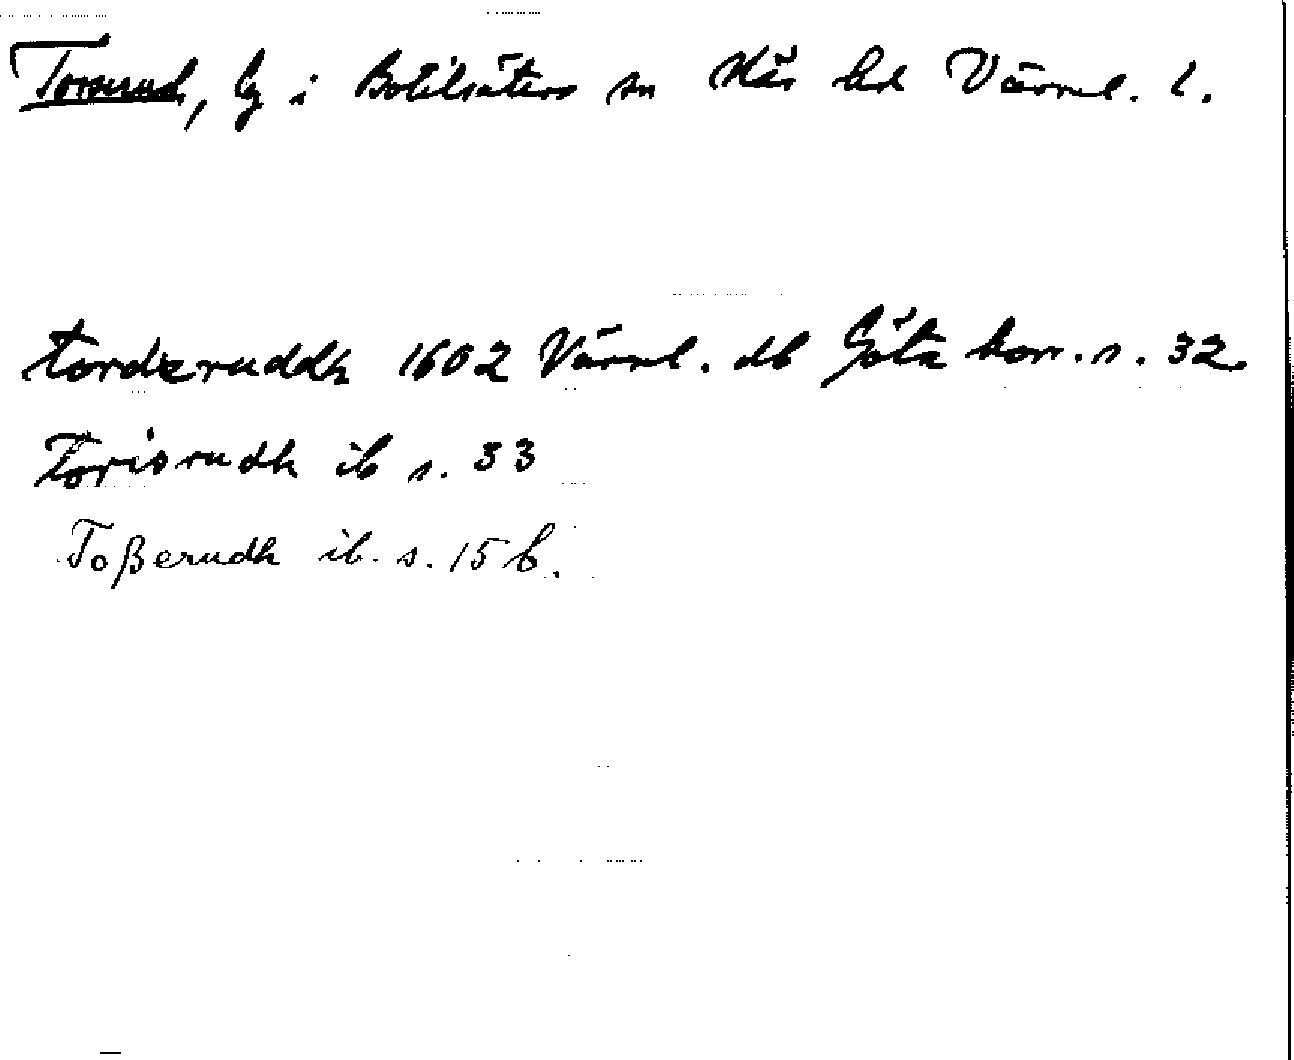 Torserud, by i Botilsäters sn Näs hd Värml. l.
tordzruddh 1602 Värml. db Göta horr. s. 32.
Torisrudh ib s. 33
Toßerudh ib. s. 15 b.